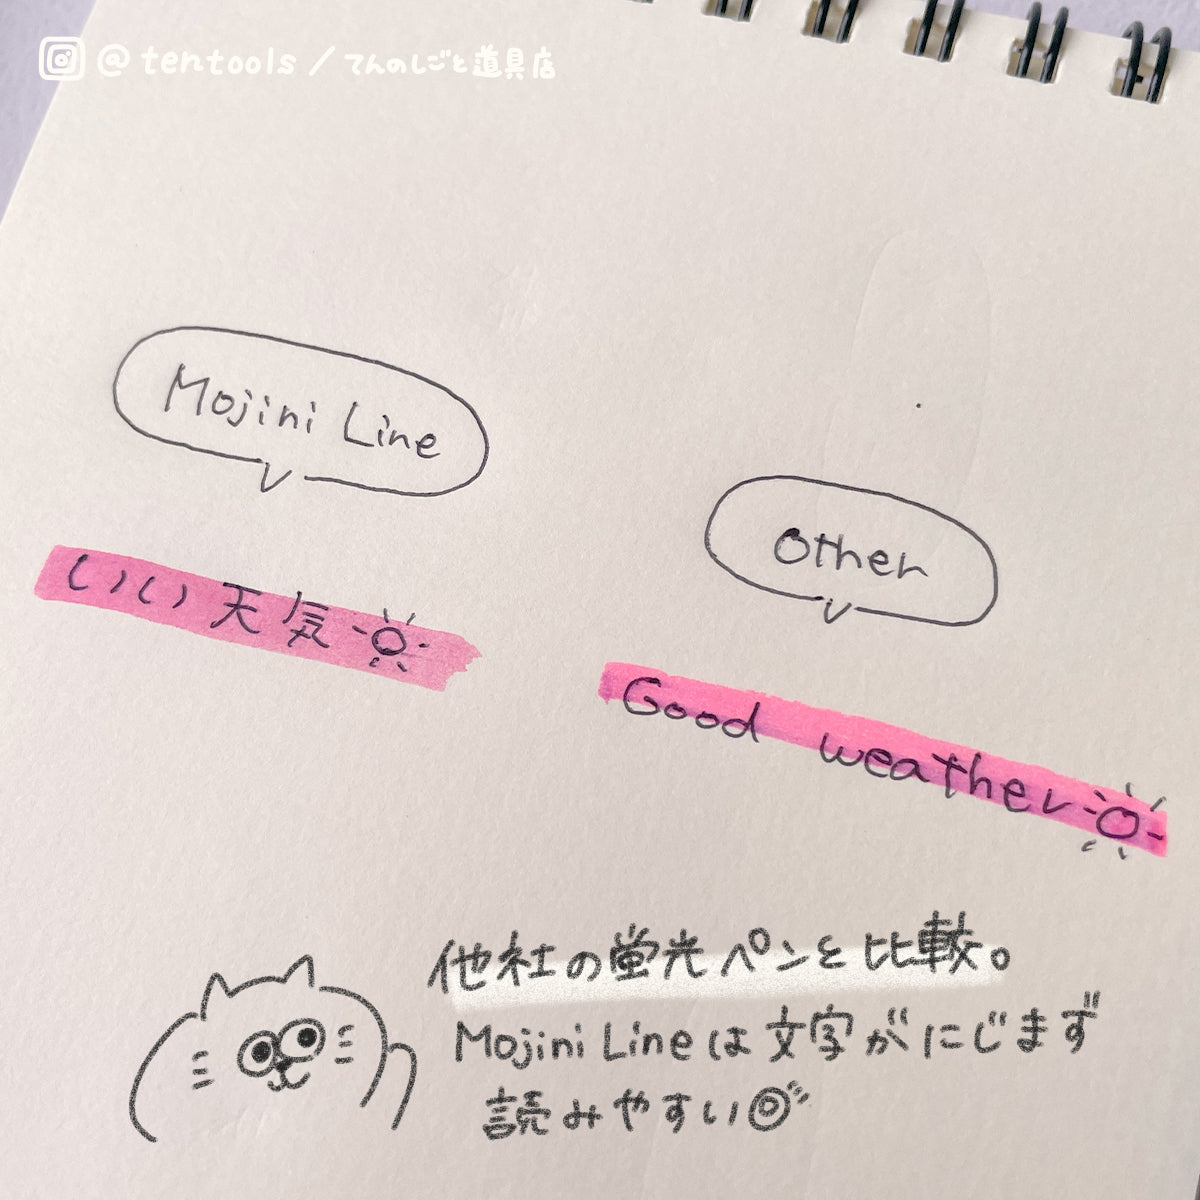 @tentools/てんのしごと道具店
Mojini Line
Other
いい天気
Good weather
他社の蛍光ペンと比較。
Mojini Lineは文字がにじまず
読みやすい◎